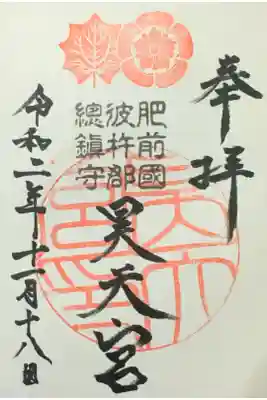 奉拝
肥前國
彼杵郡
總鎮守
昊天宮
令和二年十一月十八日